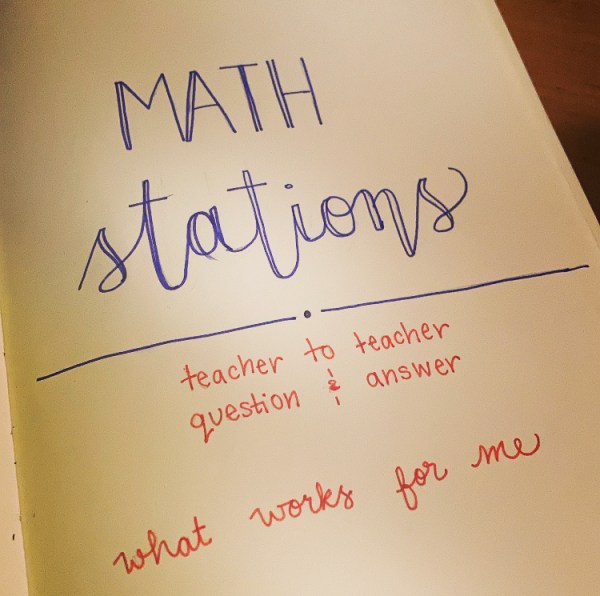 MATH
stations
teacher to teacher
question & answer
what works for me